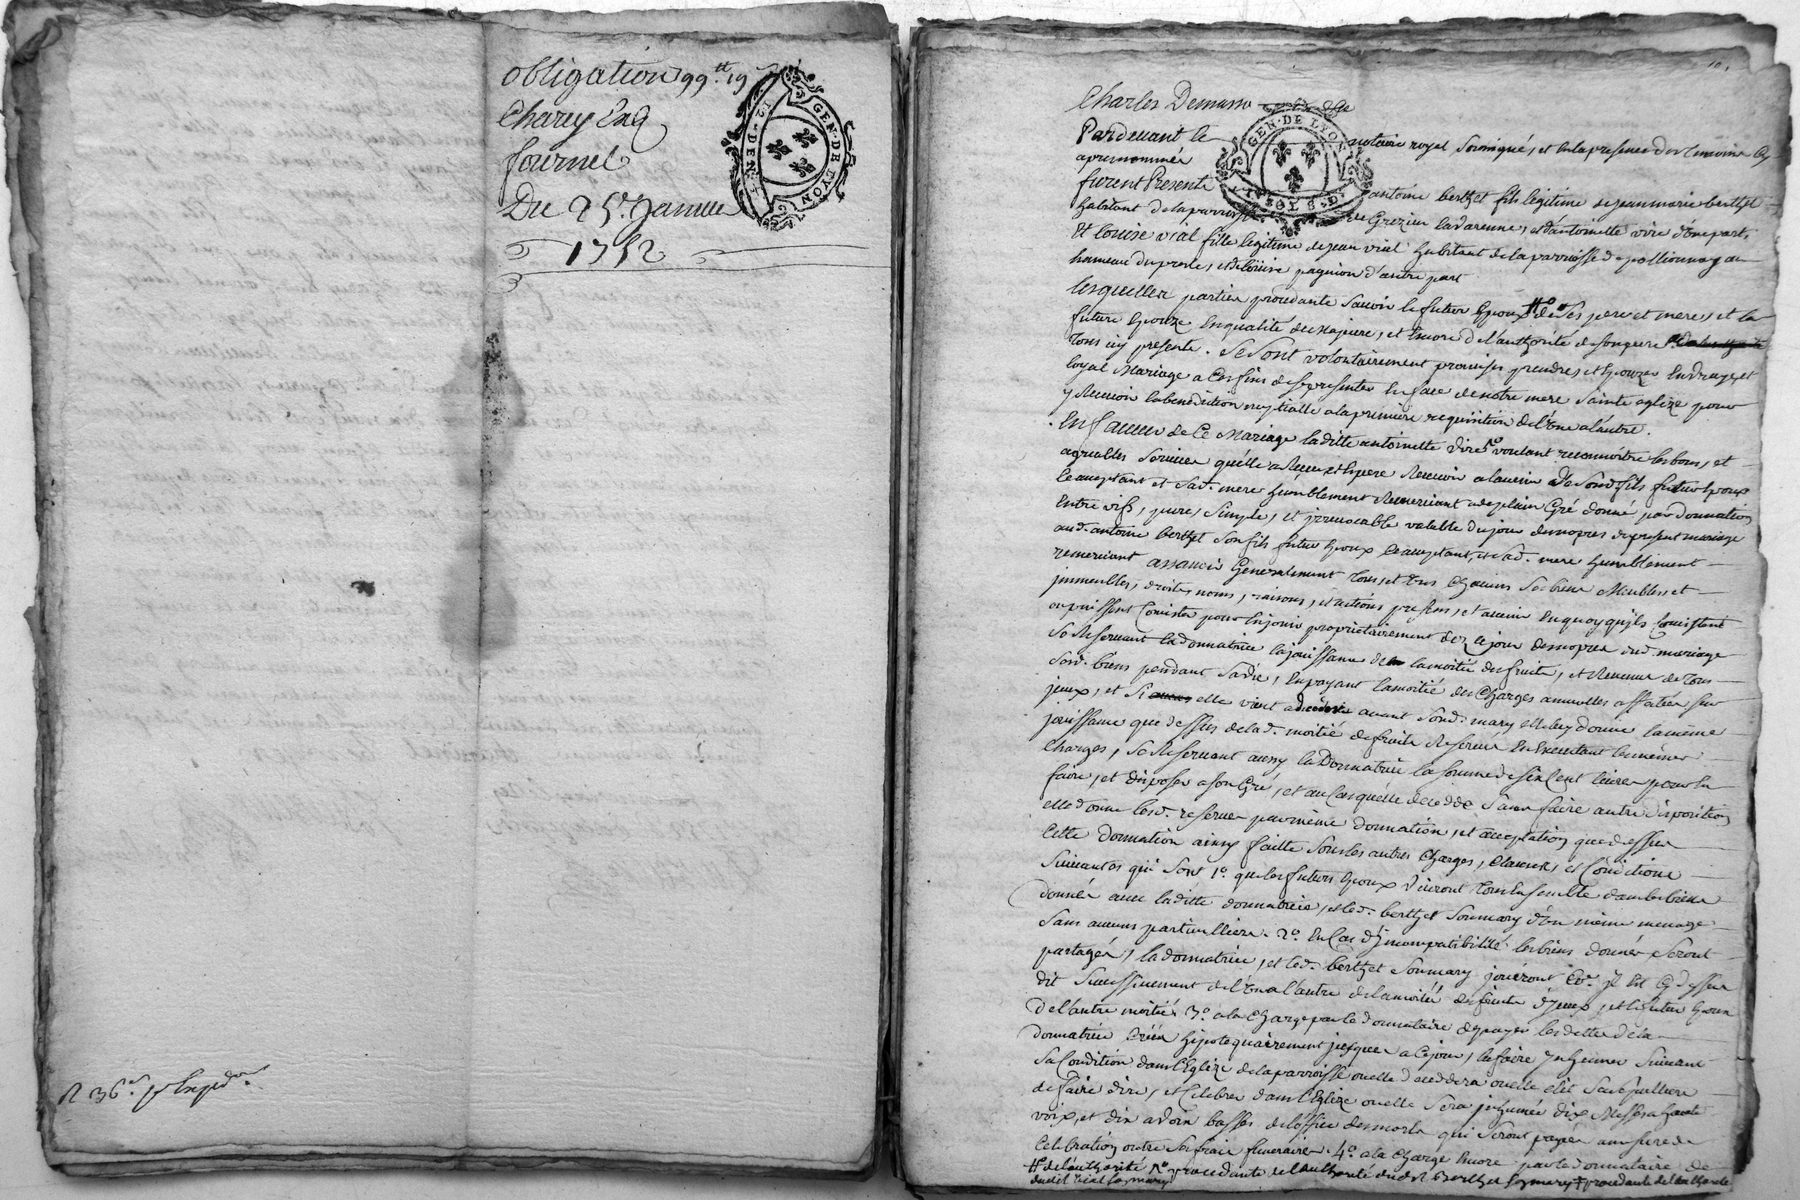 obligation 99.tt 19
Charey
fournel
Du 25.e Janvier
1752
GEN·DE LYON
12·DEN
Charles Demasso
GEN·DE LYON
Pardevant le notaire royal soussigné, et en la presence des temoins cy
apres nommés
furent Presents antoine berthet fils legitime de jean marie berthet
habitant de la parroisse de Grezieu la Varenne, et d'antoinette vire d'une part,
Et Louise vial fille legitime de jean vial habitant de la parroisse de pollionnay au
hameau du presle, et de Louise pagnion d'autre part
lesquelles parties procedante savoir le futur Epoux de ses pere et mere, et la
future Epouze en qualité de et encore de l'authorité de son pere
Tous icy presents. Se sont volontairement promises prendres, et Epouzer en vray, et
loyal Mariage a Ces fins de se presenter en face de notre mere Sainte eglize pour
y Recevoir la benediction nuptialle a la premiere requisition de l'une a l'autre.
En faveur de Ce Mariage laditte antoinette vire voulant reconnoitre les bons, et
agreables services qu'elle a Receu et Espere Recevoir a l'avenir de sond. fils futur Epoux
Ce acceptant et sad. mere humblement Remerciant a de plain Gré donné par donnation
Entre vifs, pure, simple, et irrevocable valable du jour des nopces du present mariage
aud. antoine berthet son fils futur Epoux Ce acceptant, et sad. mere humblement
remerciant assavoir Generalement Tous, et Uns Chacuns ses biens Meubles, et
jmmeubles, droits, noms, raisons, et actions presens, et avenir En quoy qu'ils Consistent
ou puissent Consister pour En jouir propriétairement dez le jour des nopces dud. mariage
Se Reservant la donnatrice la jouissance de la moitié des fruits, et Revenus de Tous
sesd. biens pendant sa vie, En payant la moitié des Charges annuelles affectées sur
jceux, et si elle vient a decéder avant sond. mary elle luy donne la même
jouissance que dessus de lad. moitié de fruits Reservée En Executant les mêmes
Charges, Se Reservant aussy la Donnatrice la somme de six Cent livres pour en
faire, et disposer a son Gré, et au Cas qu'elle decedde sans faire autre disposition
elle donne lesd. reserves par même donnation, et acceptation que dessus
Cette donnation ainsy faitte sous les autres Charges, Clauses, et Conditions
Suivantes qui sont 1°. que les futurs Epoux Vivront tous Ensemble dans les biens
donnés avec laditte donnatrice, et led. berthet son mary d'un même menage
sans aucuns particulliers. 2°. En Cas d'jncompatibilité les biens donnés seront
partagés, la donnatrice, et led. berthet son mary jouiront Co.e jl Est Cy dessus
dit successivement de l'un a l'autre de la moitié des fruits d'jceux, et le futur Epoux
de l'autre moitié 3°. a la Charge par le donnataire de payer les dettes de la
donnatrice Créés hipotequairement jusques a Ce jour, la faire Jnhumer suivant
sa Condition dans l'Eglize de la parroisse ou elle deceddera ou elle élit sa sepulture
de faire dire, et Celebrer dans l'Eglize ou elle sera jnhumée dix Messes a haute
voix, et dix a voix basses de l'office des morts qui seront payés a mesure de
Celebration outre ses frais funeraires. 4°. a la Charge Encore par le donnataire de
de l'authorité procedante de l'authorité dud. Berthet son mary procedante de l'authorité
dudit vial son mary